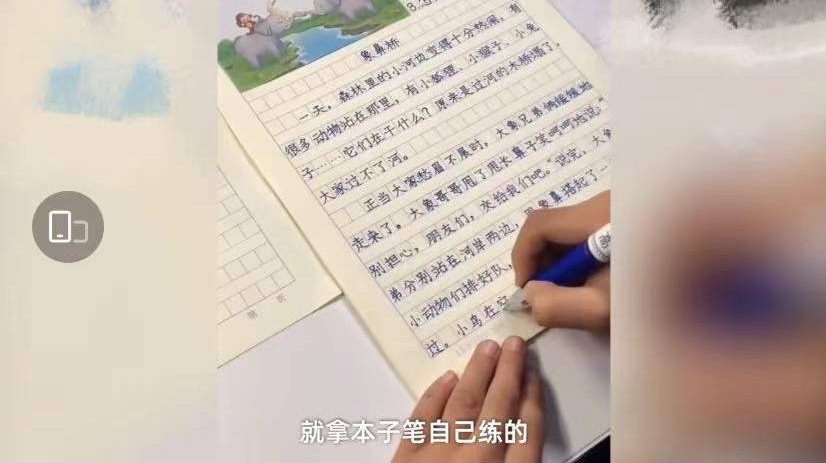 象鼻桥
一天,森林里的小河边变得十分热闹,有
很多动物站在那里,有小狐狸、小猴子、小兔
子……它们在干什么?原来是过河的木桥塌了,
大家过不了河。
正当大家愁眉不展时,大象兄弟俩慢慢地
走来了。大象哥哥甩了甩长鼻子笑呵呵地说“
别担心,朋友们,交给我们吧。”说完,大象
弟分别站在河岸两边,用象鼻搭起了一
小动物们排好队,
过。小鸟在空
就拿本子笔自己练的